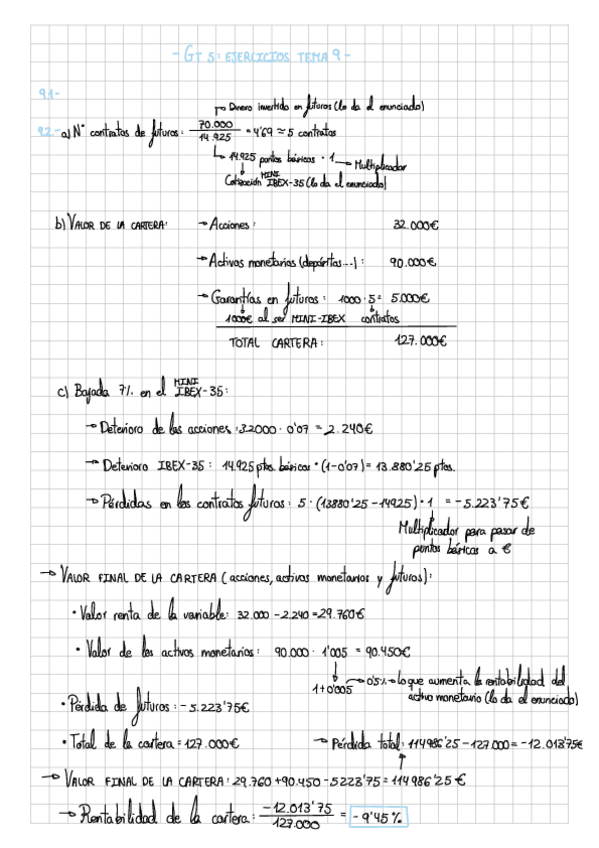 - GT 5: EJERCICIOS TEMA 9 -
9.1-
→ Dinero invertido en futuros (lo da el enunciado)
9.2- a) Nº contratos de futuros: 70.000 / 14.925 = 4'69 ≈ 5 contratos
↳ 14.925 puntos básicos · 1 → Multiplicador
Cotización MINI IBEX-35 (lo da el enunciado)
b) VALOR DE LA CARTERA: → Acciones: 32.000€
→ Activos monetarios (depósitos...): 90.000€
→ Garantías en futuros: 1000 · 5 = 5.000€
1000€ al ser MINI-IBEX contratos
TOTAL CARTERA: 127.000€
c) Bajada 7% en el MINI IBEX-35:
→ Deterioro de las acciones: 32000 · 0'07 = 2.240€
→ Deterioro IBEX-35: 14.925 ptos. básicos · (1-0'07) = 13.880'25 ptos.
→ Pérdidas en los contratos futuros: 5 · (13880'25 - 14925) · 1 = -5.223'75€
Multiplicador para pasar de
puntos básicos a €
→ VALOR FINAL DE LA CARTERA (acciones, activos monetarios y futuros):
· Valor renta de la variable: 32.000 - 2.240 = 29.760€
· Valor de los activos monetarios: 90.000 · 1'005 = 90.450€
1+0'005 → 0'5% → lo que aumenta la rentabilidad del
activo monetario (lo da el enunciado)
· Pérdida de futuros: -5.223'75€
· Total de la cartera = 127.000€ → Pérdida total: 114986'25 - 127.000 = -12.013'75€
→ VALOR FINAL DE LA CARTERA: 29.760 + 90.450 - 5223'75 = 114986'25€
→ Rentabilidad de la cartera: -12.013'75 / 127.000 = -9'45%